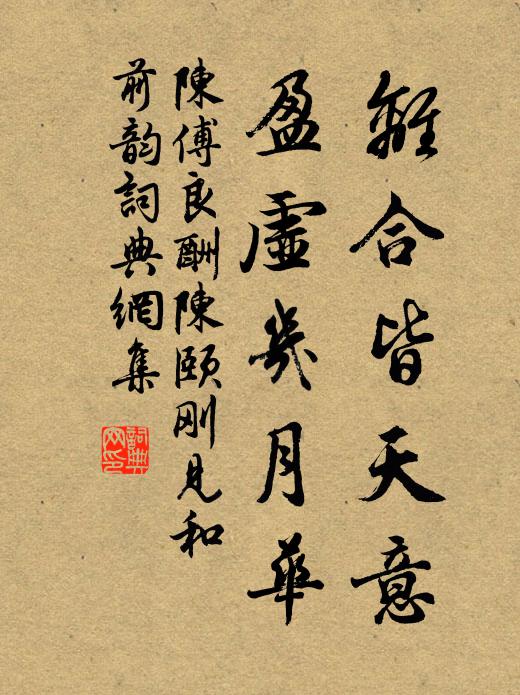 離合皆天意
盈虛幾月華
陳傅良酬陳頤剛見和
前韵詞典網集
詞典
网印